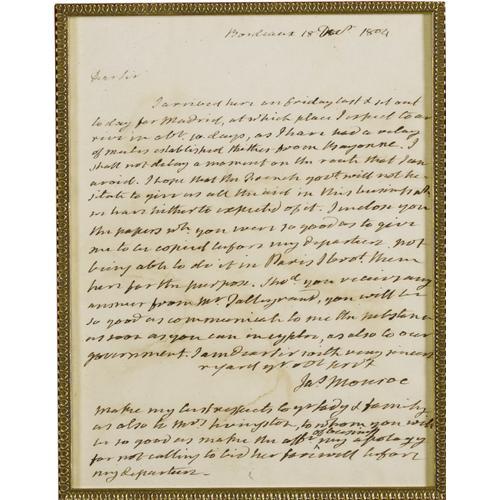 Bordeaux 18 Decr. 1804
Dear Sir
I arrived here on Friday last & set out
today for Madrid, at which place I expect to ar
rive in abt. 10 days, as I have had a relay
of mules established thither from Bayonne. I
shall not delay a moment on the route that I can
avoid. I hope that the French govt. will not he-
sitate to give us all the aid in this business wh.
we have hitherto expected of it. I inclose you
the papers wh. you were so good as to give
me to be copied before my departure. not
being able to do it in Paris I brot. them
here for the purpose. Shod. you receive any
answer from Mr Talleyrand, you will be
so good as communicate to me the substance
as soon as you can in cypher, as also to our
government. I am Dear Sir with very sincere
regard yr obt servt.
Jas. Monroe
make my best respects to yr lady & family
as also to Mrs Livingston, to whom you will
be so good as make the my apology
for not calling to bid her farewell before
my departure.